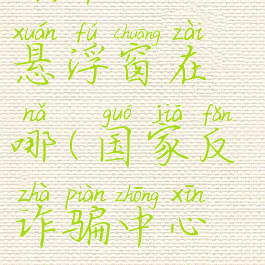 xuán fú chuāng zài
悬浮窗在
nǎ guó jiā fǎn
哪(国家反
zhà piàn zhōng xīn
诈骗中心